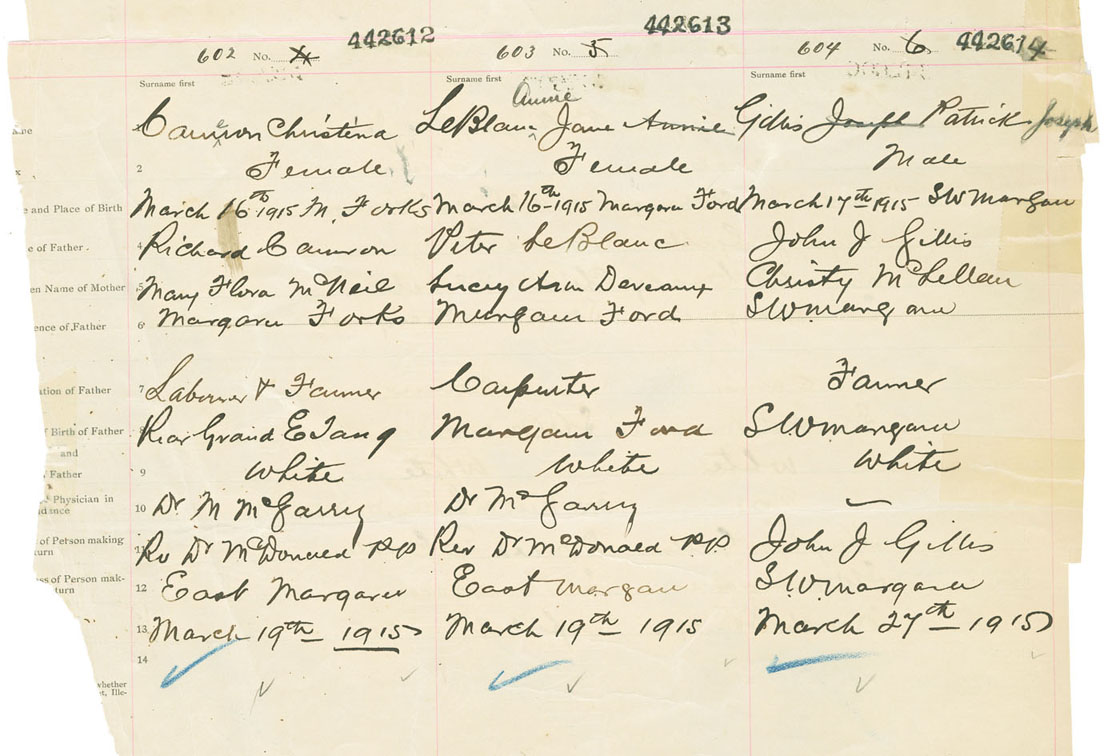 442612 442613 442614
602 No. 4 603 No. 5 604 No. 6
Surname first Surname first Surname first
Annie
Cameron Christena LeBlanc Jane Annie Gillis Joseph Patrick Joseph
2 Female Female Male
e and Place of Birth March 16th 1915 M. Forks March 16th 1915 Margaree Ford March 17th 1915 SW Margaree
e of Father. 4 Richard Cameron Peter LeBlanc John J Gillis
en Name of Mother 5 Mary Flora McNeil Lucy Ann Deveaux Christy McLellan
ence of Father 6 Margaree Forks Margaree Ford SW Margaree
ation of Father 7 Laborer & Farmer Carpenter Farmer
f Birth of Father 8 Rear Grand Etang Margaree Ford SW Margaree
and
Father 9 White White White
Physician in 10 Dr M McGarry Dr McGarry —
dance
of Person making 11 Rev Dr McDonald PP Rev Dr McDonald PP John J Gillis
turn
ss of Person mak- 12 East Margaree East Margaree SW Margaree
turn
13 March 19th 1915 March 19th 1915 March 27th 1915
14
whether
t, Ille-